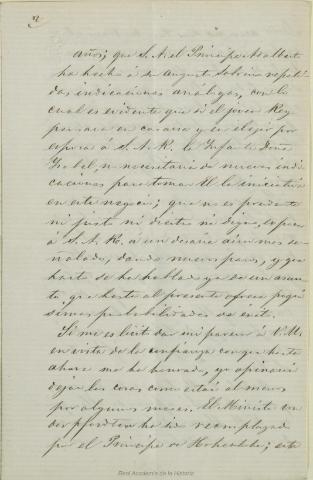 2
años; que S. A. el Principe Adalberto
ha hecho á su Augusta Sobrina repeti-
das indicaciones análogas, con lo
cual es evidente que si el joven Rey
pensara en casarse y en elejir por
esposa á S. A. R. la Infanta Doña
Isabel, no necesitaria de nuevas indi-
caciones para tomar él la iniciativa
en este negocio; que no es prudente
ni justo ni digno, esponer
á S. A. R. á un desaire aun mas se-
ñalado, dando nuevos pasos, y que
harto se ha hablado ya de un asun-
to, que hasta al presente ofrece poquí-
simas probabilidades de exito.
Si me es lícito dar mi parecer á V. M.
en vista de la confianza con que hasta
ahora me ha honrado, yo opinaria
dejar las cosas como están al menos
por algunos meses. El Ministro von
der Pfordten ha sido reemplazado
por el Príncipe de Hohenlohe; este
Real Academia de la Historia